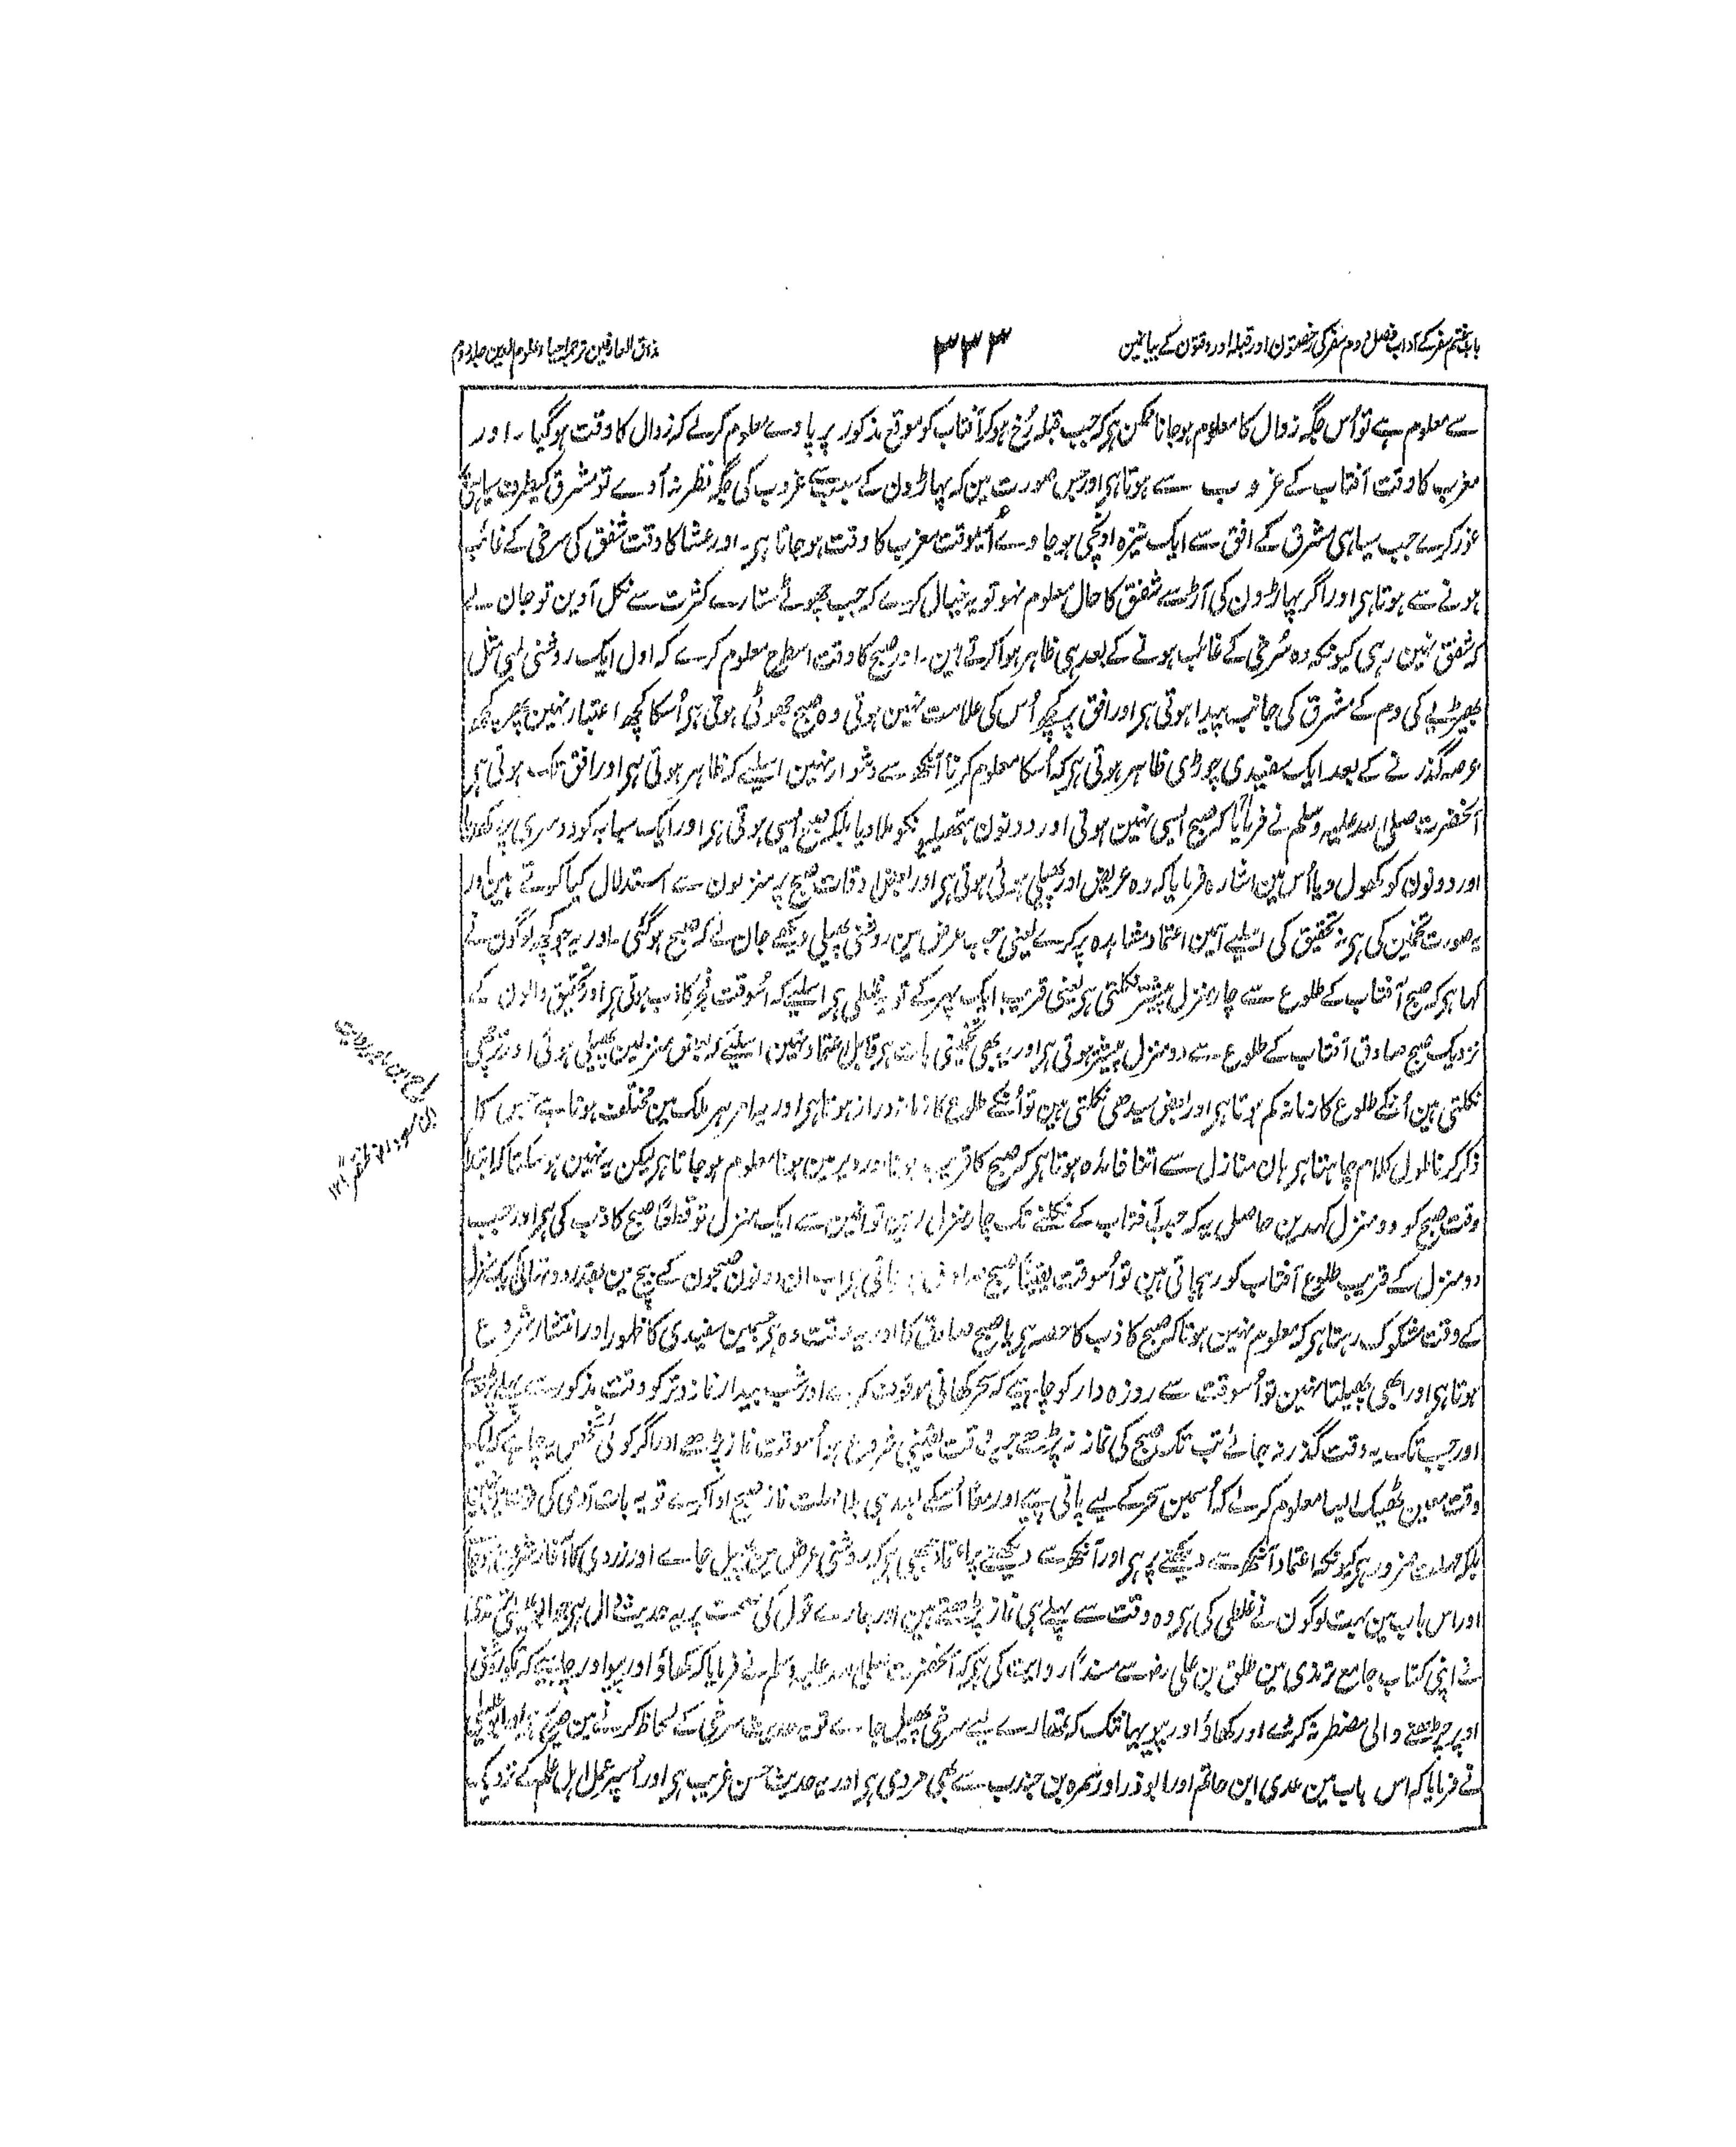 باب ہفتم سفر کے آداب فصل دوم سفر کی رخصتون اور قبلہ اور وقتون کے بیانمین
۳۳۳
مذاق العارفین ترجمہ احیاء علوم الدین جلد دوم
سے معلوم ہے تو اُس جگہ زوال کا معلوم ہوجانا ممکن ہی کہ جب قبلہ رُخ ہوکر آفتاب کو موقع مذکور پر پاوے معلوم کرلے کہ زوال کا وقت ہوگیا ۔ اور
مغرب کا وقت آفتاب کے غروب سے ہوتا ہی اور جس صورت مین کہ پہاڑون کے سبب سے غروب کی جگہ نظر نہ آوے تو مشرق کیطرف سیاہی
غور کرے جب سیاہی مشرق کے افق سے ایک نیزہ اونچی ہوجاوے اُسوقت مغرب کا وقت ہوجاتا ہی ۔ اور عشا کا وقت شفق کی سرخی کے غائب
ہونے سے ہوتا ہی اور اگر پہاڑون کی آڑ سے شفق کا حال معلوم نہو تو یہ خیال کرے کہ جب چھوٹے ستارے کثرت سے نکل آوین تو جان لے
کہ شفق نہین رہی کیونکہ وہ سُرخی کے غائب ہونے کے بعد ہی ظاہر ہوا کرتے ہین ۔ اور صبح کا وقت اسطرح معلوم کرے کہ اول ایک روشنی لمبی مثل
بھیڑیے کی دم کے مشرق کی جانب پیدا ہوتی ہی اور افق پر کچھ اُس کی علامت نہین ہوتی وہ صبح جھوٹی ہوتی ہی اُسکا کچھ اعتبار نہین پھر کچھ
عرصہ گذرنے کے بعد ایک سفیدی چوڑی ظاہر ہوتی ہی کہ اُسکا معلوم کرنا آنکھ سے دشوار نہین اسلیے کہ ظاہر ہوتی ہی اور افق تک ہوتی ہی
آنحضرت صلی اللہ علیہ وسلم نے فرمایا کہ صبح ایسی نہین ہوتی اور دونون ہتھیلیونکو ملا دیا بلکہ صبح ایسی ہوتی ہی اور ایک سبابہ کو دوسری پر رکھدیا
اور دونون کو کھول دیا اُس مین اشارہ فرمایا کہ وہ عریض اور پھیلی ہوئی ہوتی ہی اور بعض اوقات صبح پر منزلون سے استدلال کیا کرتے ہین اور
یہ صورت تخمین کی ہی نہ تحقیق کی اسلیے اسمین اعتماد مشاہدہ پر کرے یعنی جب عرض مین روشنی پھیلی دیکھے جان لے کہ صبح ہوگئی ۔ اور یہ جو کچھ لوگون نے
کہا ہی کہ صبح آفتاب کے طلوع سے چار منزل پیشتر نکلتی ہی یعنی قریب ایک پہر کے تو یہ غلطی ہی اسلیے کہ اُسوقت فجر کاذب ہوتی ہی اور تحقیق والون کے
نزدیک صبح صادق آفتاب کے طلوع سے دو منزل پیشتر ہوتی ہی اور یہ بھی تخمینی بات ہی قابل اعتماد نہین اسلیے کہ بعض منزلین پھیلی ہوئی اور ترچھی
نکلتی ہین اُنکے طلوع کا زمانہ کم ہوتا ہی اور بعض سیدھی نکلتی ہین تو اُنکے طلوع کا زمانہ دراز ہوتا ہی اور یہ امر ہر ملک مین مختلف ہوتا ہے جس کا
ذکر کرنا طول کلام چاہتا ہی ہان منازل سے اتنا فائدہ ہوتا ہی کہ صبح کا قریب ہونا اور دیر مین ہونا معلوم ہوجاتا ہی لیکن یہ نہین ہوسکتا کہ ابتدا
وقت صبح کو دو منزل کہدین حاصل یہ کہ جب آفتاب کے نکلنے تک چار منزل رہین تو انمین سے ایک منزل تو قطعًا صبح کاذب کی ہی اور جب
دو منزل کے قریب طلوع آفتاب کو رہجاتی ہین تو اُسوقت یقینًا صبح صادق ہوجاتی ہی اب ان دونون صبحون کے بیچ مین بقدر دو تہائی ایک منزل
کے وقت مشکوک رہتا ہی کہ معلوم نہین ہوتا کہ صبح کاذب کا حصہ ہی یا صبح صادق کا اور یہ وقت وہ ہی جسمین سفیدی کا ظہور اور انتشار شروع
ہوتا ہی اور ابھی پھیلتا نہین تو اُسوقت سے روزہ دار کو چاہیے کہ سحر کھانی موقوف کرے اور شب بیدار نماز وتر کو وقت مذکور سے پہلے پڑھ لے
اور جب تک یہ وقت گذر نہ جائے تب تک صبح کی نماز نہ پڑھے جب وقت یقینی شروع ہو اُسوقت نماز پڑھے اور اگر کوئی شخص یہ چاہے کہ ایک
وقت معین ٹھیک ایسا معلوم کرلے کہ اُسمین سحر کے لیے پانی پیے اور معًا اُسکے بعد ہی بلا مہلت نماز صبح ادا کرے تو یہ بات آدمی کی قدرت مین نہین
بلکہ مہلت ضرور ہی کیونکہ اعتماد آنکھ سے دیکھنے پر ہی اور آنکھ سے دیکھنے پر اعتماد جبھی ہی کہ روشنی عرض مین پھیل جاے اور زردی کا آغاز شروع ہوجاے
اور اس باب مین بہت لوگون نے غلطی کی ہی وہ وقت سے پہلے ہی نماز پڑھتے ہین اور ہمارے قول کی صحت پر یہ حدیث دال ہی جو ابو عیسیٰ ترمذی
نے اپنی کتاب جامع ترمذی مین طلق بن علی رضہ سے مسندًا روایت کی ہی کہ آنحضرت صلی اللہ علیہ وسلم نے فرمایا کہ کھاؤ اور پیو اور چاہیے کہ تمکو روشنی
اوپر چڑھنے والی مضطر نہ کرے اور کھاؤ اور پیو یہانتک کہ تمھارے لیے سرخی پھیل جاے تو یہ حدیث سرخی کے لحاظ کرنے مین صریح ہی اور ابو عیسیٰ
نے فرمایا کہ اس باب مین عدی ابن حاتم اور ابوذر اور سمرہ بن جندب سے بھی مروی ہی اور یہ حدیث حسن غریب ہی اور اُسپر عمل اہل علم کے نزدیک